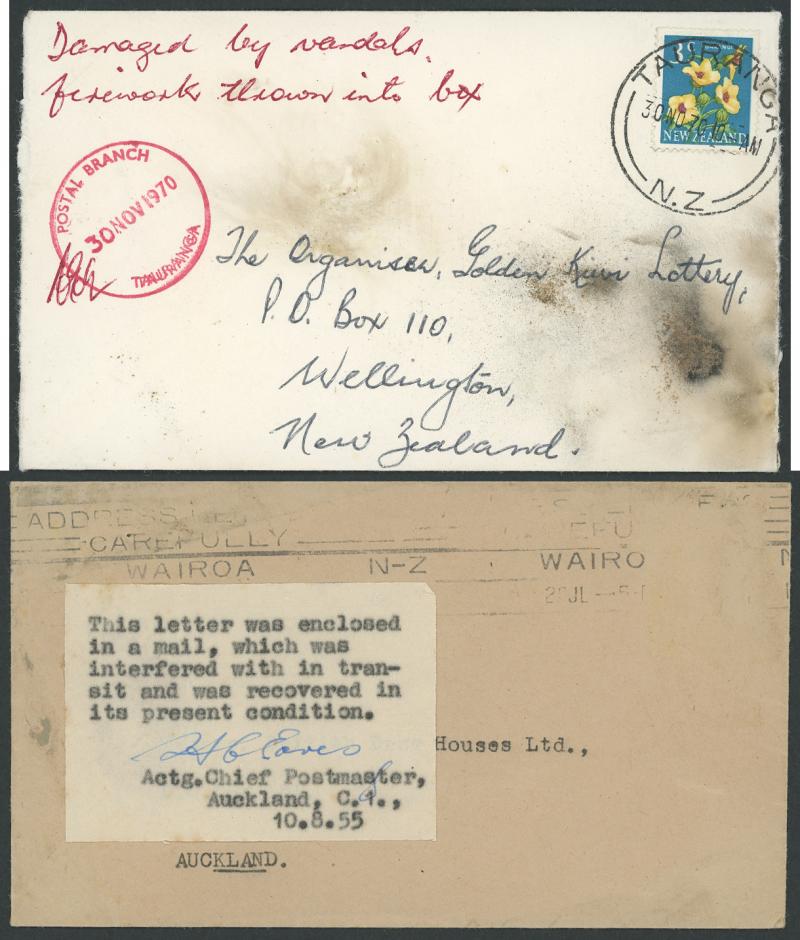 Damaged by vandals.
firework thrown into box
3c
NEW ZEALAND
TAURANGA
30NO70
AM
N.Z
POSTAL BRANCH
30NOV1970
TAURANGA
The Organiser, Golden Kiwi Lottery,
P.O. Box 110,
Wellington,
New Zealand.
ADDRESS
CAREFULLY
WAIROA N-Z WAIRO
This letter was enclosed
in a mail, which was
interfered with in tran-
sit and was recovered in
its present condition.
Houses Ltd.,
Actg.Chief Postmaster,
Auckland, C.1.,
10.8.55
AUCKLAND.